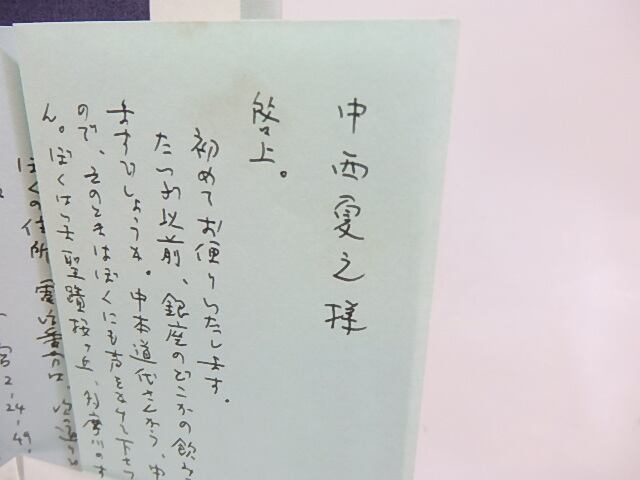 中西夏之様
啓上。
初めてお便りいたします。
たいぶ以前、銀座のどこかの飲み
ますでしょうか。中本道代さんから、中
ので、そのときはぼくにも声をかけて下さっ
ん。ぼくはいま聖蹟桜ヶ丘、多摩川のす
ぼくの住所、電話番号は、
宮2-24-49.